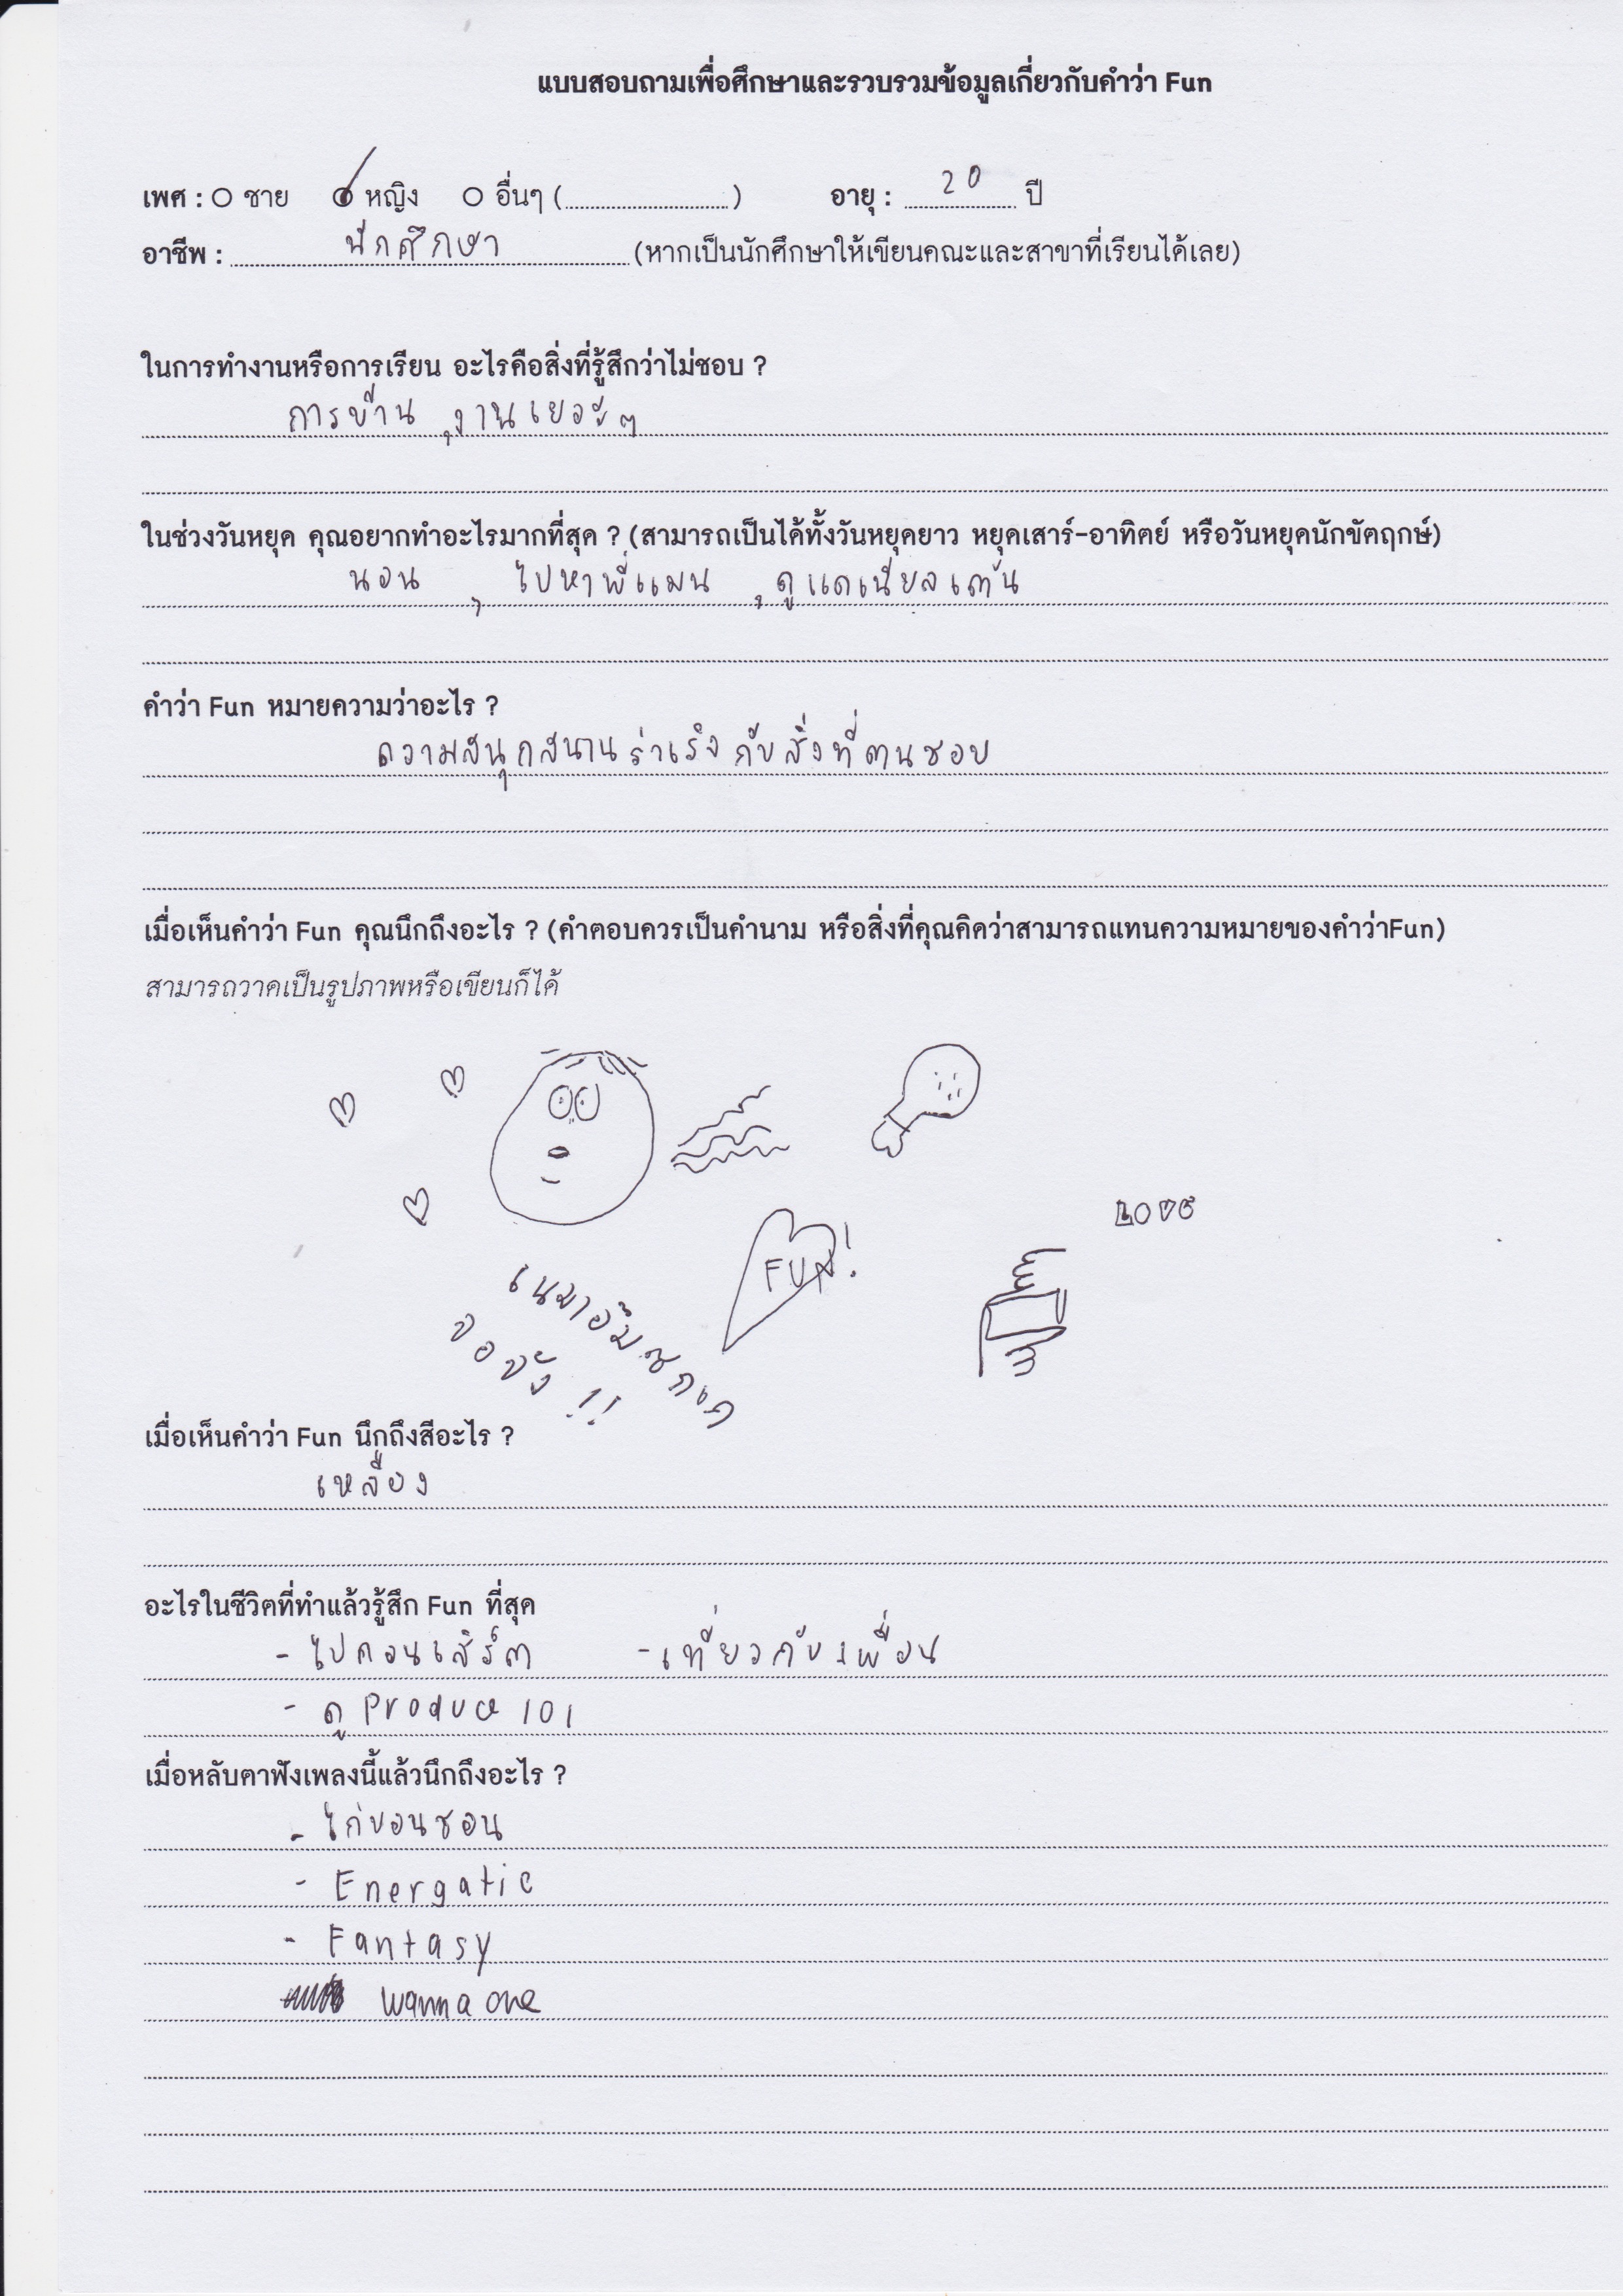 แบบสอบถามเพื่อศึกษาและรวบรวมข้อมูลเกี่ยวกับคำว่า Fun
เพศ : ชาย หญิง อื่นๆ (........................) อายุ : 20 ปี
อาชีพ : นักศึกษา (หากเป็นนักศึกษาให้เขียนคณะและสาขาที่เรียนได้เลย)
ในการทำงานหรือการเรียน อะไรคือสิ่งที่รู้สึกว่าไม่ชอบ ?
การบ้าน , งานเยอะๆ
ในช่วงวันหยุด คุณอยากทำอะไรมากที่สุด ? (สามารถเป็นได้ทั้งวันหยุดยาว หยุดเสาร์-อาทิตย์ หรือวันหยุดนักขัตฤกษ์)
นอน , ไปหาพี่แมน , ดูแดเนียลเต้น
คำว่า Fun หมายความว่าอะไร ?
ความสนุกสนานร่าเริง กับสิ่งที่ตนชอบ
เมื่อเห็นคำว่า Fun คุณนึกถึงอะไร ? (คำตอบควรเป็นคำนาม หรือสิ่งที่คุณคิดว่าสามารถแทนความหมายของคำว่าFun)
สามารถวาดเป็นรูปภาพหรือเขียนก็ได้
LOVE
FUN!
จอจัง !!
เมื่อเห็นคำว่า Fun นึกถึงสีอะไร ?
เหลือง
อะไรในชีวิตที่ทำแล้วรู้สึก Fun ที่สุด
- ไปคอนเสิร์ต - เที่ยวกับเพื่อน
- ดู Produce 101
เมื่อหลับตาฟังเพลงนี้แล้วนึกถึงอะไร ?
- ไก่บอนชอน
- Energatic
- Fantasy
wanna one